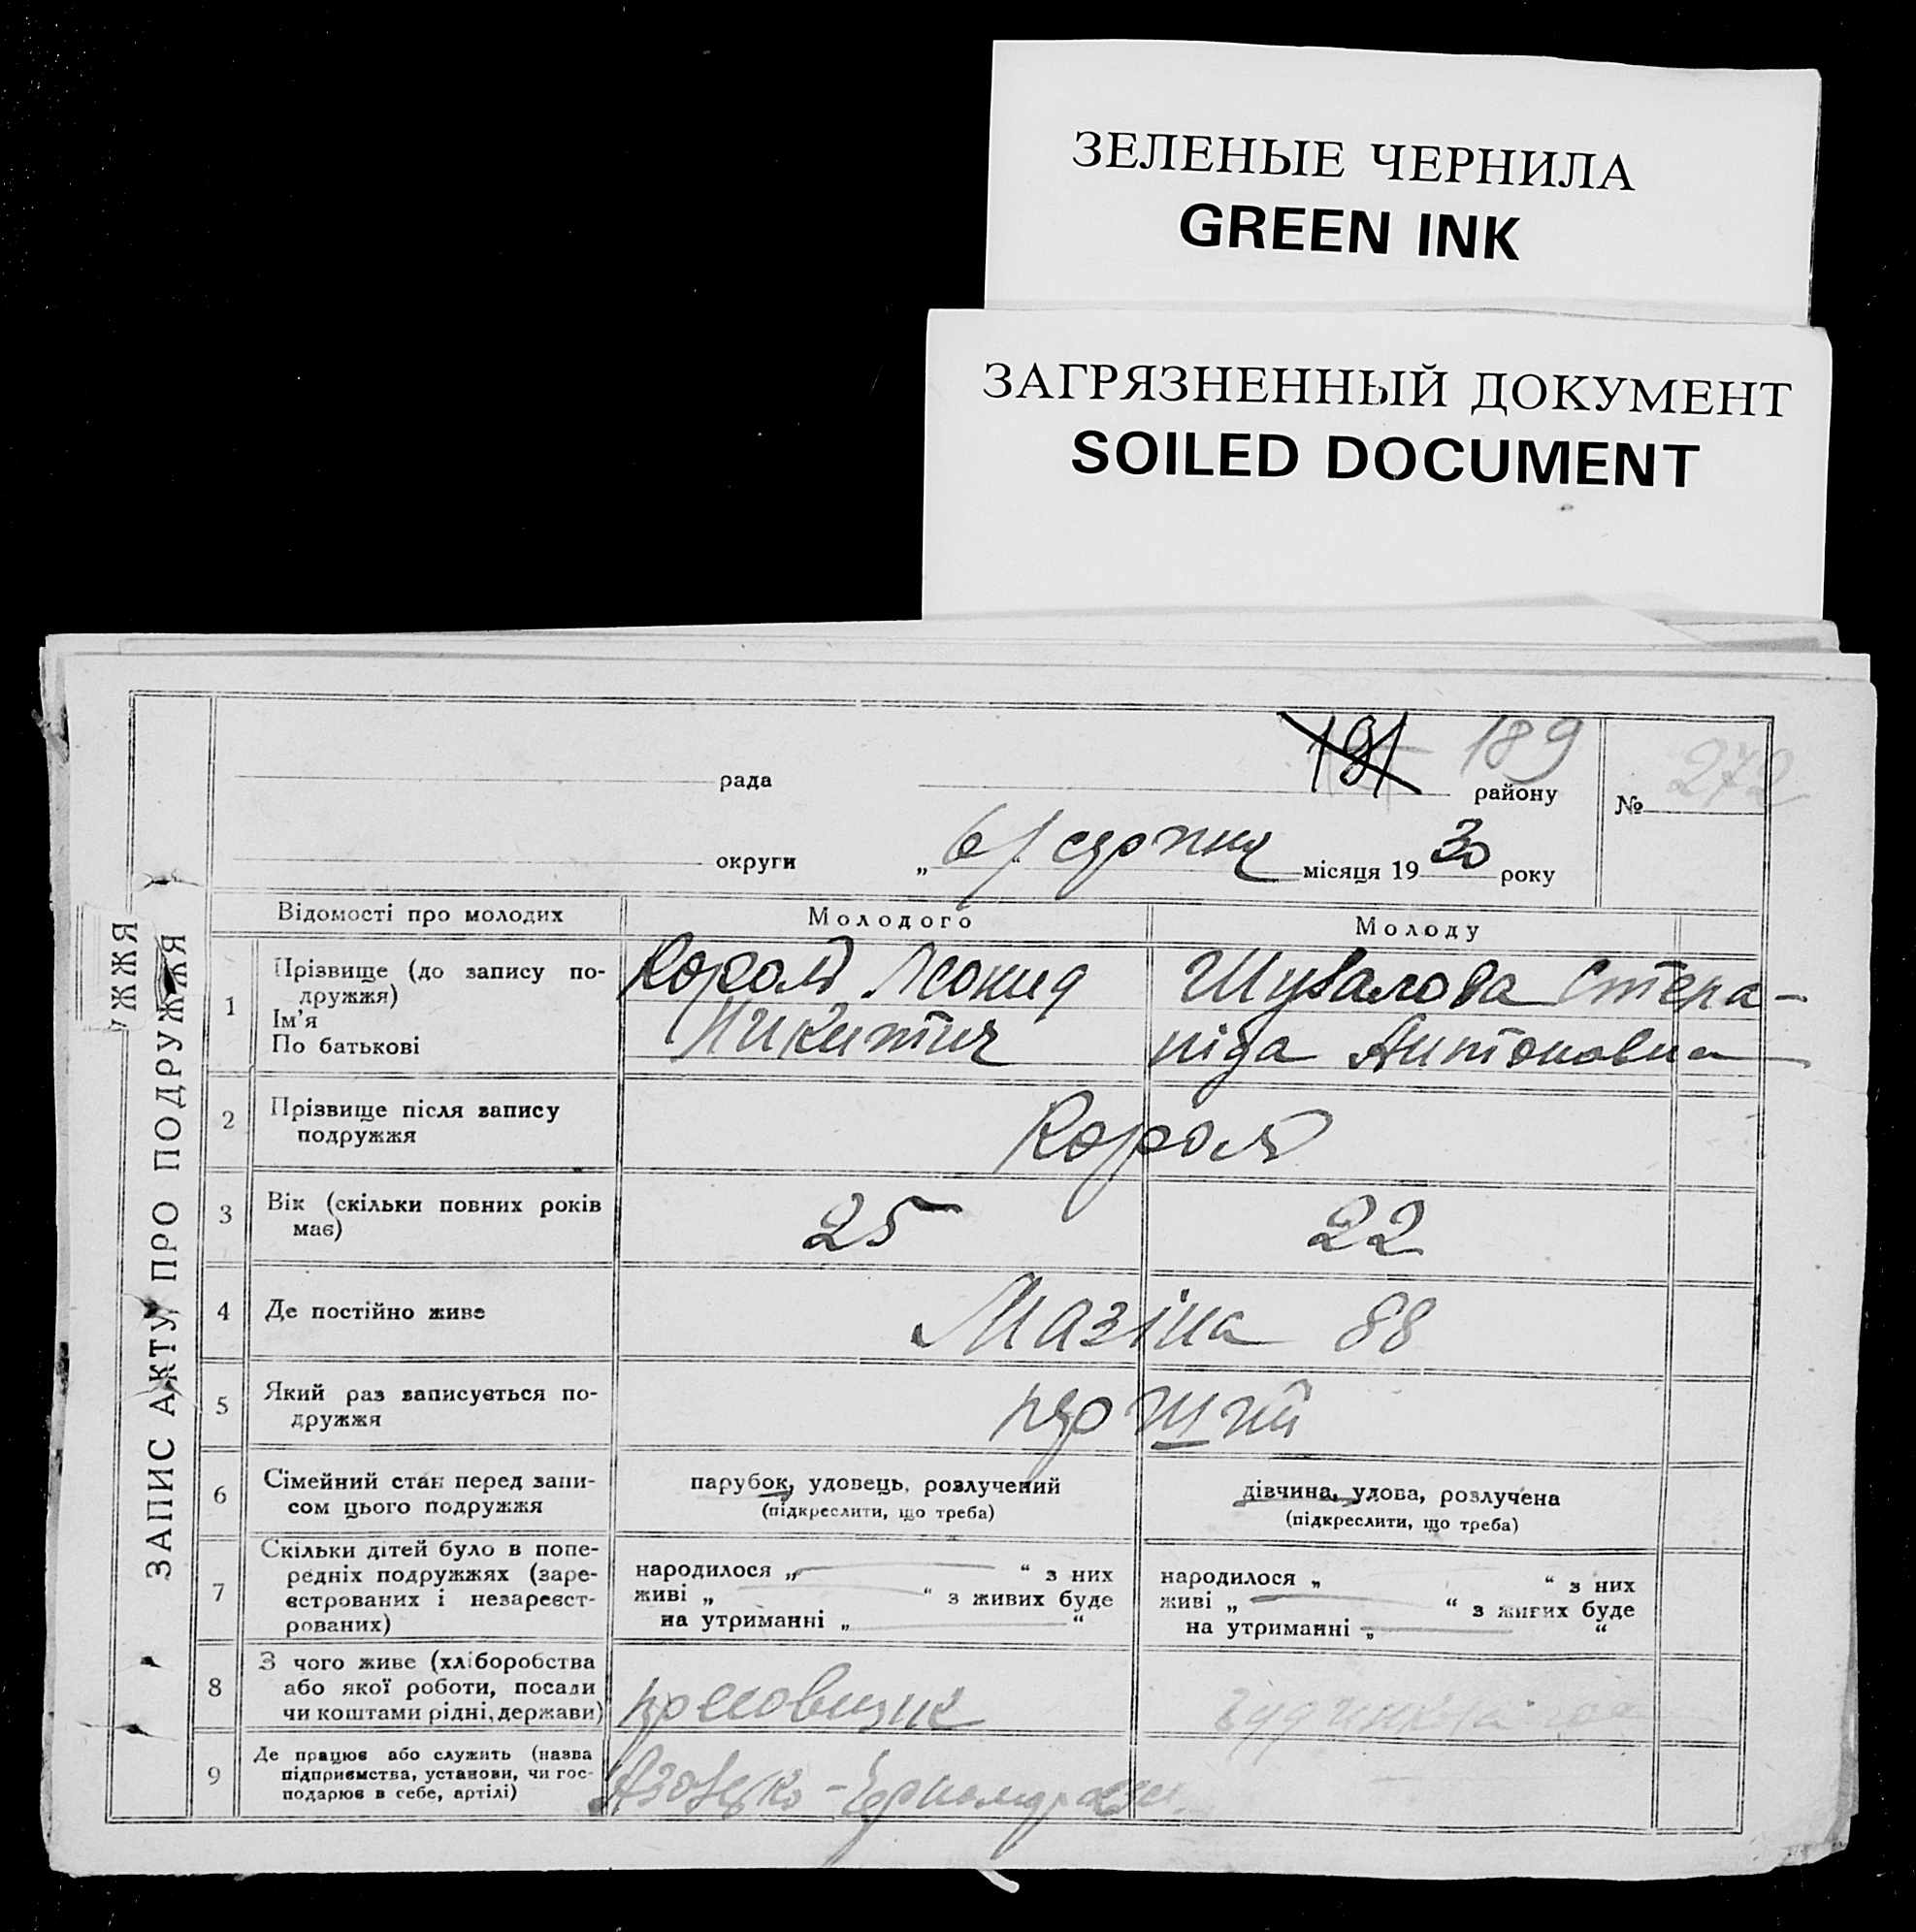 ЗЕЛЕНЫЕ ЧЕРНИЛА
GREEN INK
ЗАГРЯЗНЕННЫЙ ДОКУМЕНТ
SOILED DOCUMENT
УЖЖЯ
ЗАПИС АКТУ ПРО ПОДРУЖЖЯ
191 189
рада району № 272
округи „6“ серпня місяця 1930 року
Відомості про молодих Молодого Молоду
1 Прізвище (до запису по-
дружжя)
Ім'я
По батькові
Король Леонид
Никитич
Шувалова Степа-
ніда Антоновна
2 Прізвище після запису
подружжя
Король
3 Вік (скільки повних років
має)
25 22
4 Де постійно живе
Мазіна 88
5 Який раз записується по-
дружжя
перший
6 Сімейний стан перед запи-
сом цього подружжя
парубок, удовець, розлучений
(підкреслити, що треба)
дівчина, удова, розлучена
(підкреслити, що треба)
7 Скільки дітей було в попе-
редніх подружжях (заре-
єстрованих і незареєст-
рованих)
народилося „ “ з них
живі „ “ з живих буде
на утриманні „ “
народилося „ “ з них
живі „ “ з живих буде
на утриманні „ “
8 З чого живе (хліборобства
або якої роботи, посади
чи коштами рідні, держави)
9 Де працює або служить (назва
підприємства, установи, чи гос-
подарює в себе, артілі)